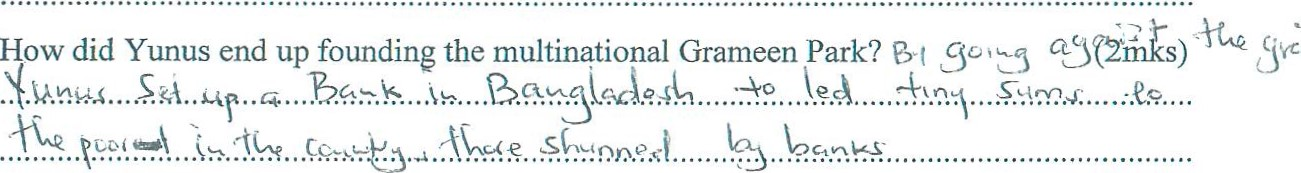 How did Yunus end up founding the multinational Grameen Park? By going against (2mks) the gra
Yunus Set up a Bank in Bangladesh to led tiny sums to
the poorest in the country, those shunned by banks